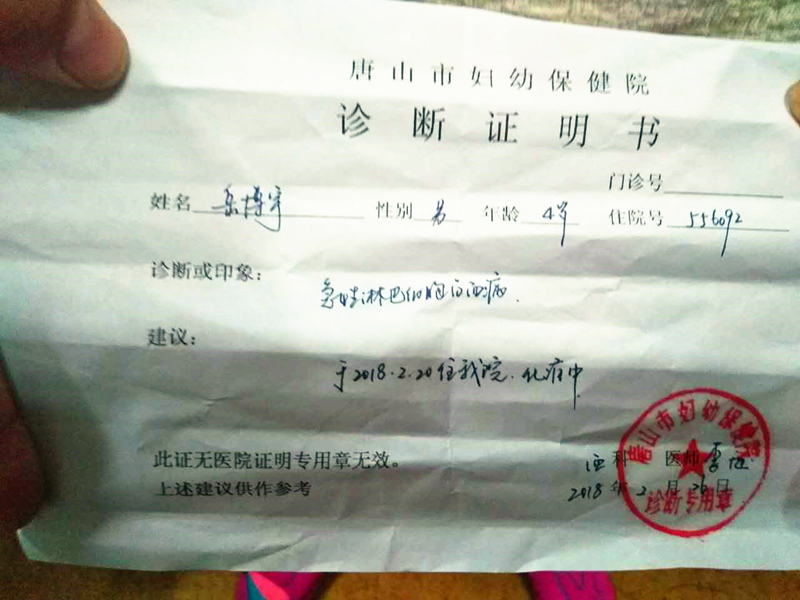 唐山市妇幼保健院
诊断证明书
门诊号
姓名 岳博宇 性别 男 年龄 4岁 住院号 556092
诊断或印象：
急性淋巴细胞白血病.
建议：
于2018.2.20住我院.化疗中
此证无医院证明专用章无效。 科 医师
上述建议供作参考 2018年2月26日
唐山市妇幼保健院
诊断专用章